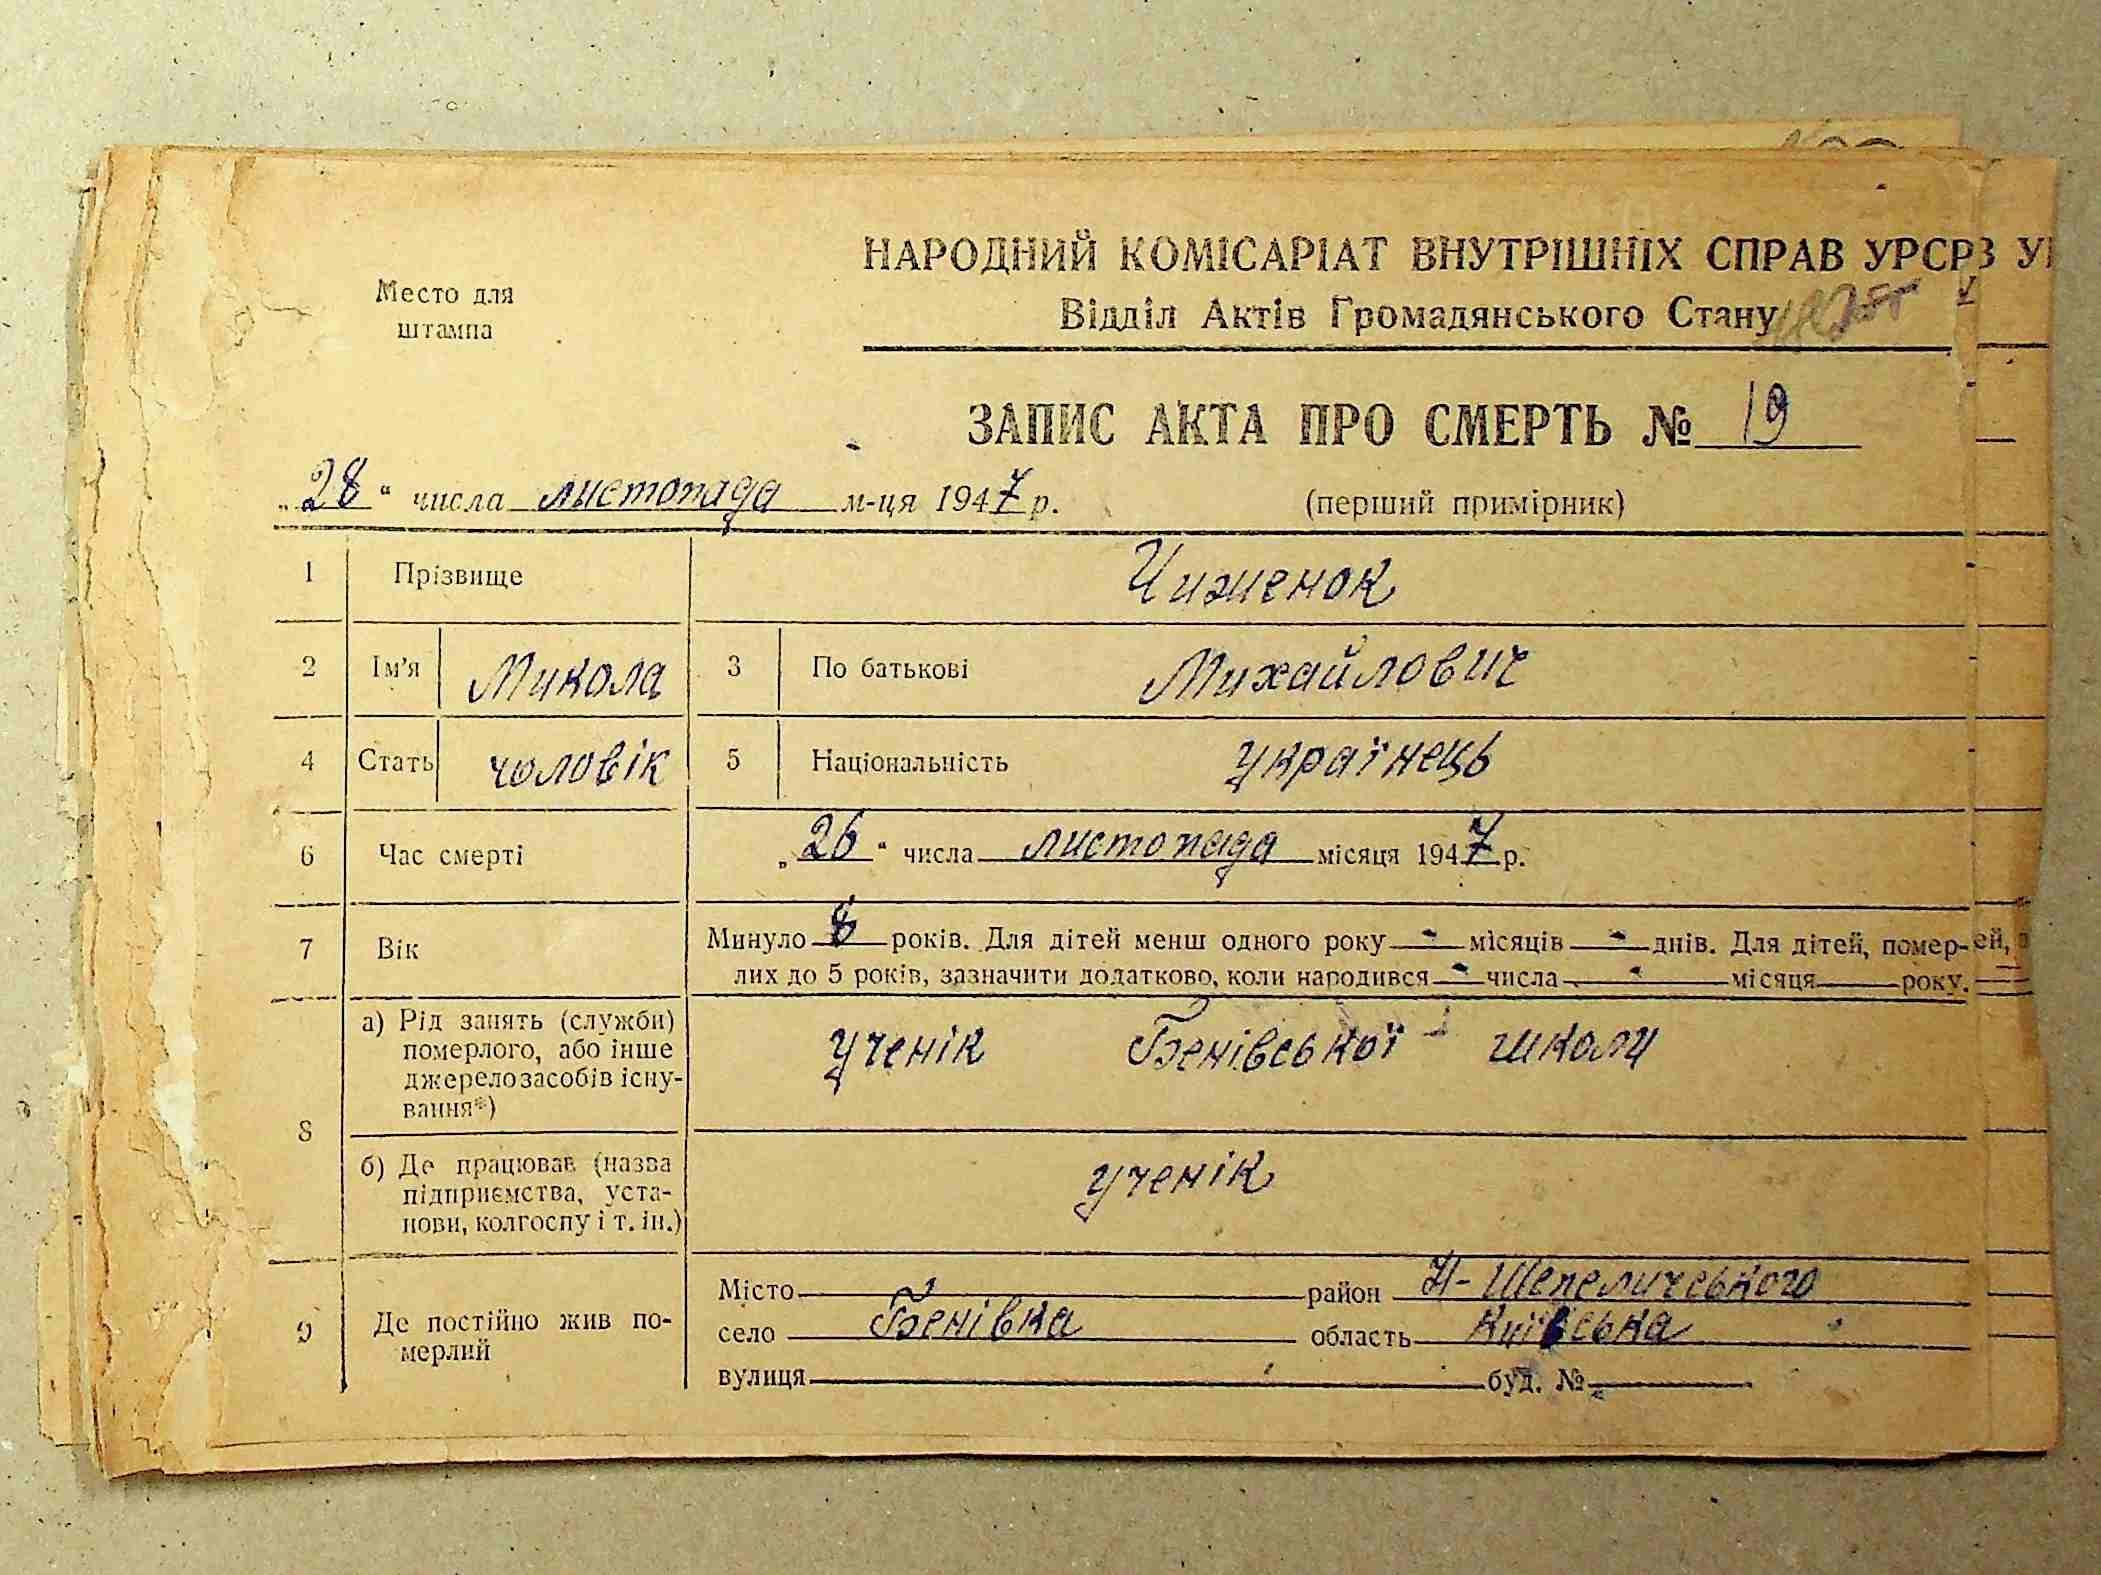 НАРОДНИЙ КОМІСАРІАТ ВНУТРІШНІХ СПРАВ УРСР
Место для
штампа
Відділ Актів Громадянського Стану
ЗАПИС АКТА ПРО СМЕРТЬ № 19
„28“ числа листопада м-ця 1947 р. (перший примірник)
1 Прізвище Чиженок
2 Ім'я Микола 3 По батькові Михайлович
4 Стать чоловік 5 Національність українець
6 Час смерті „26“ числа листопада місяця 1947 р.
7 Вік Минуло 8 років. Для дітей менш одного року - місяців - днів. Для дітей, помер-
лих до 5 років, зазначити додатково, коли народився - числа - місяця року.
8 а) Рід занять (служби)
померлого, або інше
джерело засобів існу-
вання*) ученік Бенівської школи
б) Де працював (назва
підприємства, уста-
нови, колгоспу і т. ін.) ученік
9 Де постійно жив по-
мерлий
Місто район Н-Шепеличського
село Бенівка область Київська
вулиця буд. №